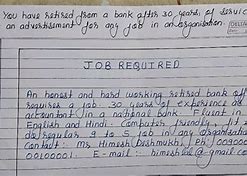 You have retired from a bank after 30 years of servic
an advertisement for any job in an organisation.
JOB REQUIRED
An honest and hard working retired bank off
requires a job. 30 years of experience as
accountant in a national bank. Fluent in
English and Hindi. Computer friendly, fit t
do regular 9 to 5 job in any organisatio
Contact: Mr. Himesh Deshmukh, Ph: 009000
00100001. E-mail:- himesh@gmail.co